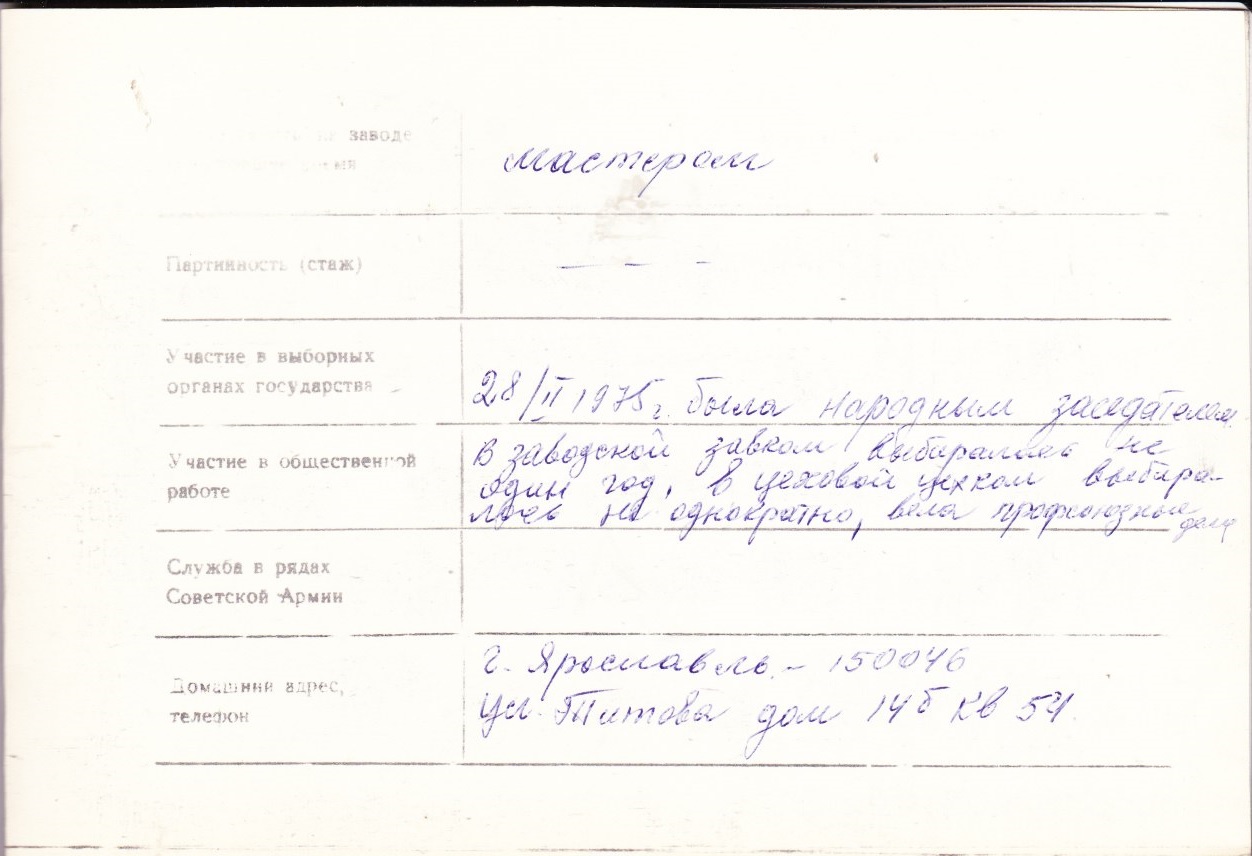 заводе
мастером
Партийность (стаж)
— - -
Участие в выборных
органах государства
28/II 1975 г. была народным заседателем
Участие в общественной
работе
В заводской завком выбиралась не
один год, в цеховой цехком выбира-
лась не однократно, вела профсоюзные
дела
Служба в рядах
Советской Армии
Домашний адрес,
телефон
г. Ярославль - 150046
ул. Титова дом 14б кв 54